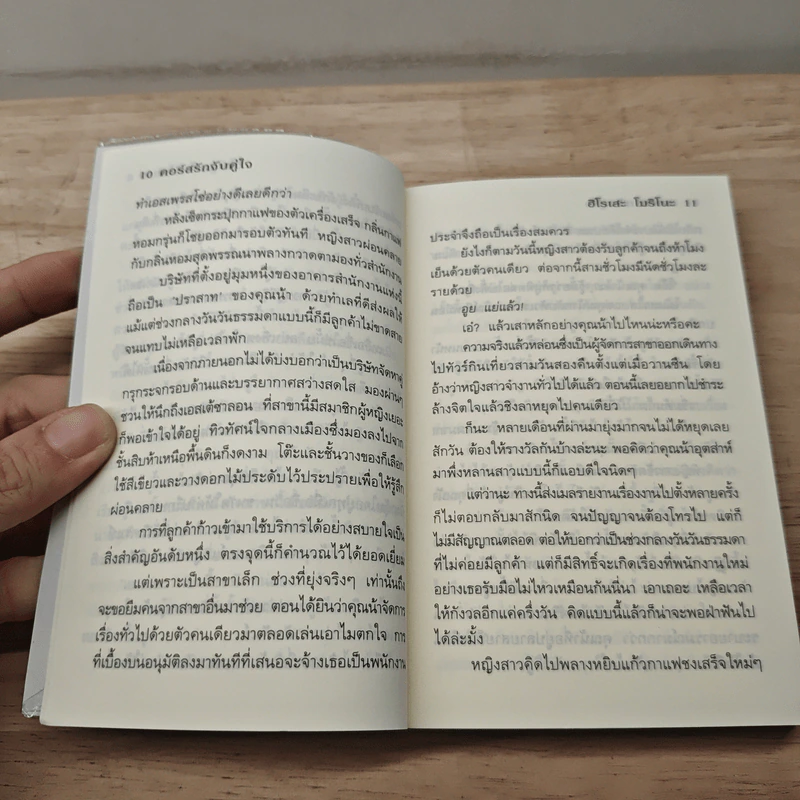 10 คอร์สรักจับคู่ใจ
ทำเอสเพรสโซ่อย่างดีเลยดีกว่า
หลังเซ็ตกระปุกกาแฟของตัวเครื่องเสร็จ กลิ่นกาแฟ
หอมกรุ่นก็โชยออกมารอบตัวทันที หญิงสาวผ่อนคลาย
กับกลิ่นหอมสุดพรรณนาพลางกวาดตามองทั่วสำนักงาน
บริษัทที่ตั้งอยู่มุมหนึ่งของอาคารสำนักงานแห่งนี้
ถือเป็น 'ปราสาท' ของคุณน้า ด้วยทำเลที่ดีส่งผลให้
แม้แต่ช่วงกลางวันวันธรรมดาแบบนี้ก็มีลูกค้าไม่ขาดสาย
จนแทบไม่เหลือเวลาพัก
เนื่องจากภายนอกไม่ได้บ่งบอกว่าเป็นบริษัทจัดหาคู่
กรุกระจกรอบด้านและบรรยากาศสว่างสดใส มองผ่านๆ
ชวนให้นึกถึงเอสเต้ซาลอน ที่สาขานี้มีสมาชิกผู้หญิงเยอะ
ก็พอเข้าใจได้อยู่ ทิวทัศน์ใจกลางเมืองซึ่งมองลงไปจาก
ชั้นสิบห้าเหนือพื้นดินก็งดงาม โต๊ะและชั้นวางของก็เลือก
ใช้สีเขียวและวางดอกไม้ประดับไว้ประปรายเพื่อให้รู้สึก
ผ่อนคลาย
การที่ลูกค้าก้าวเข้ามาใช้บริการได้อย่างสบายใจเป็น
สิ่งสำคัญอันดับหนึ่ง ตรงจุดนี้ก็คำนวณไว้ได้ยอดเยี่ยม
แต่เพราะเป็นสาขาเล็ก ช่วงที่ยุ่งจริงๆ เท่านั้นถึง
จะขอยืมคนจากสาขาอื่นมาช่วย ตอนได้ยินว่าคุณน้าจัดการ
เรื่องทั่วไปด้วยตัวคนเดียวมาตลอดเล่นเอาไมตกใจ การ
ที่เบื้องบนอนุมัติลงมาทันทีที่เสนอจะจ้างเธอเป็นพนักงาน
ฮิโรเสะ โมริโนะ 11
ประจำจึงถือเป็นเรื่องสมควร
ยังไงก็ตามวันนี้หญิงสาวต้องรับลูกค้าจนถึงห้าโมง
เย็นด้วยตัวคนเดียว ต่อจากนี้สามชั่วโมงมีนัดชั่วโมงละ
รายด้วย
อูย แย่แล้ว!
เอ๋? แล้วเสาหลักอย่างคุณน้าไปไหนน่ะหรือคะ
ความจริงแล้วหล่อนซึ่งเป็นผู้จัดการสาขาออกเดินทาง
ไปทัวร์กินเที่ยวสามวันสองคืนตั้งแต่เมื่อวานซืน โดย
อ้างว่าหญิงสาวจำงานทั่วไปได้แล้ว ตอนนี้เลยอยากไปชำระ
ล้างจิตใจแล้วชิงลาหยุดไปคนเดียว
ก็นะ หลายเดือนที่ผ่านมายุ่งมากจนไม่ได้หยุดเลย
สักวัน ต้องให้รางวัลกันบ้างล่ะนะ พอคิดว่าคุณน้าอุตส่าห์
มาพึ่งหลานสาวแบบนี้ก็แอบดีใจนิดๆ
แต่ว่านะ ทางนี้ส่งเมลรายงานเรื่องงานไปตั้งหลายครั้ง
ก็ไม่ตอบกลับมาสักนิด จนปัญญาจนต้องโทรไป แต่ก็
ไม่มีสัญญาณตลอด ต่อให้บอกว่าเป็นช่วงกลางวันวันธรรมดา
ที่ไม่ค่อยมีลูกค้า แต่ก็มีสิทธิ์จะเกิดเรื่องที่พนักงานใหม่
อย่างเธอรับมือไม่ไหวเหมือนกันนี่นา เอาเถอะ เหลือเวลา
ให้กังวลอีกแค่ครึ่งวัน คิดแบบนี้แล้วก็น่าจะพอฝ่าฟันไป
ได้ล่ะมั้ง
หญิงสาวคิดไปพลางหยิบแก้วกาแฟชงเสร็จใหม่ๆ